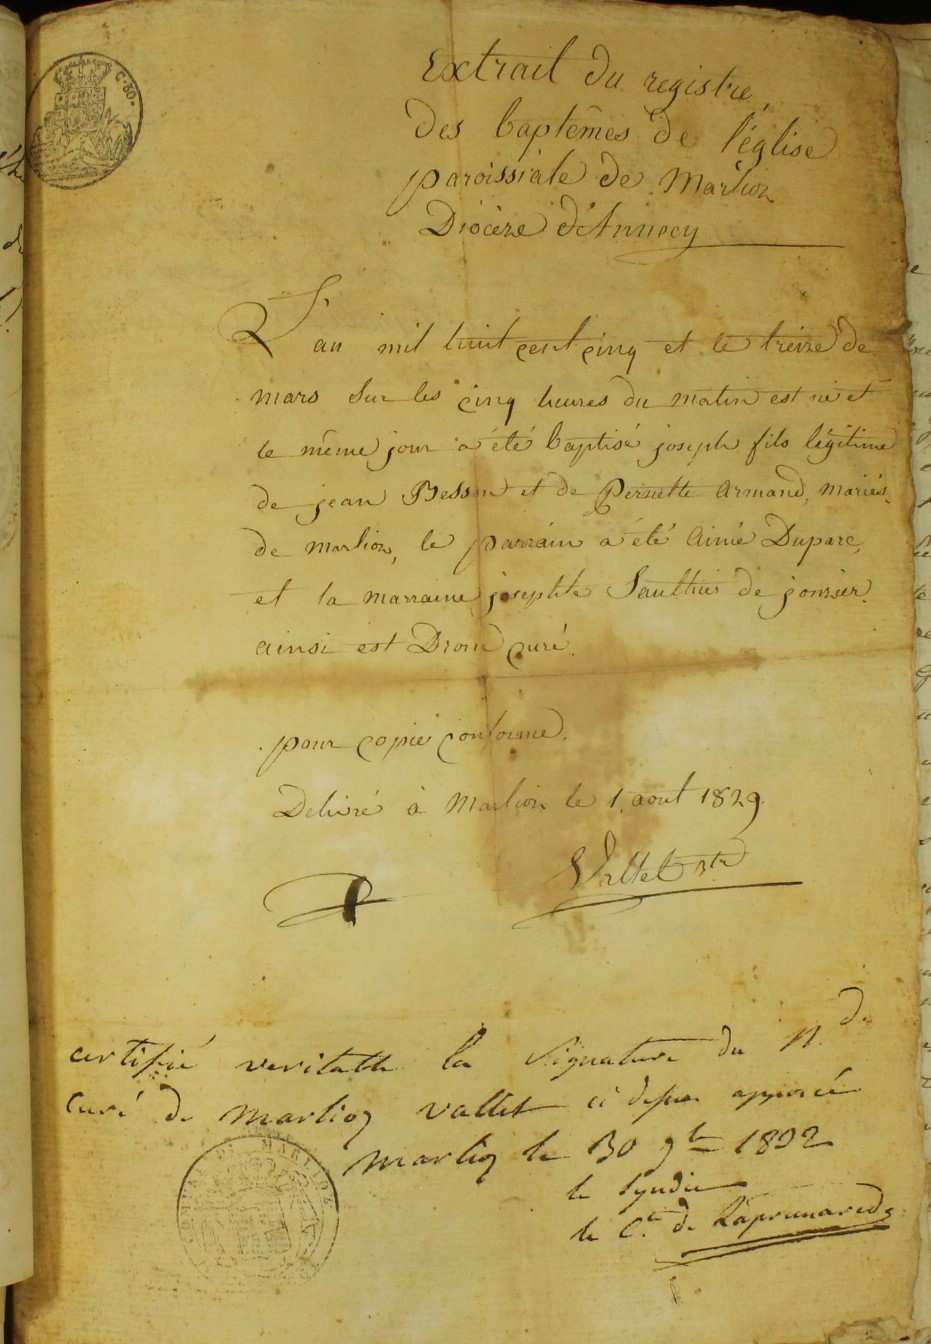 C. 80.
Extrait du registre
des baptêmes de l'église
paroissiale de Marlioz
Diocèze d'Annecy
L'an mil huit cent cinq et le treize de
mars sur les cinq heures du matin est né et
le même jour a été baptisé joseph fils légitime
de jean Besson et de Pernette armand, mariés
de marlioz, le parrain a été aimé Duparc,
et la marraine josephte Saulthier de jonzier.
ainsi est curé.
pour copie conforme.
Delivré à Marlioz le 1. aout 1829.
Vallet
certifié veritable la signature du Rd.
curé de marlioz vallet ci dessus apposée
marlioz le 30 9bre 1832
le syndic
le Cte. de
MARLIOZ